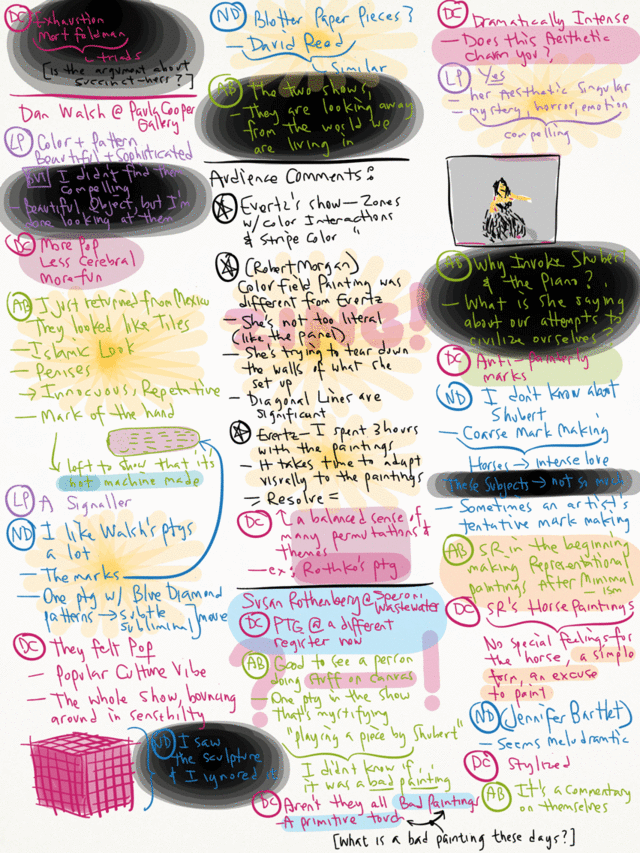 DC Exhaustion
Mort Feldman
triads
[is the argument about
succinct-ness?]
Dan Walsh @ Paula Cooper
Gallery
LP Color + Pattern
Beautiful + Sophisticated
I didn't find them
compelling
- Beautiful Object, but I'm
done looking at them
DC More Pop
Less Cerebral
more fun
AB I Just returned from Mexico
They looked like Tiles
- Islamic Look
- Penises
→ Innocuous, Repetative
- Mark of the hand
left to show that it's
not machine made
LP A Signaller
ND I like Walsh's ptgs
a lot
- The marks
- One ptg w/ Blue Diamond
patterns → subtle
subliminal] move
DC They felt Pop
- Popular Culture Vibe
- The whole show, bouncing
around in sensibility
ND I saw
the sculpture
& I ignored it
ND Blotter Paper Pieces?
- David Reed
Similar
AB The two shows
- They are looking away
from the world we
are living in
Audience Comments:
Evertz's show - Zones
w/ color Interactions
& Stripe Color "
(Robert Morgan)
Color field Painting was
different from Evertz
- She's not too literal
(like the panel)
- She's trying to tear down
the walls of what she
set up
- Diagonal Lines are
significant
Evertz - I spent 3 hours
with the paintings
- It takes time to adapt
visually to the paintings
= Resolve =
DC a balanced sense of
many permutations &
themes
- ex: Rothko's ptg
Susan Rothenberg @ Speroni
Wastewater
DC PTG @ a different
register now
AB Good to see a person
doing stuff on canvas
- One ptg in the show
that's mystifying
"playing a piece by Shubert"
I didn't know if..
it was a bad painting
DC Aren't they all Bad Paintings
- A primitive touch
[What is a bad painting these days?]
DC Dramatically Intense
- Does this Aesthetic
charm you?
LP Yes
- her Aesthetic singular
- mystery, horror, emotion
compelling
AB Why Invoke Shubert
& the Piano?
- What is she saying
about our attempts to
civilize ourselves?
DC Anti-painterly
marks
ND I don't know about
Shubert
- Coarse Mark Making
Horses → intense love
These Subjects → not so much
- Sometimes an artist's
tentative mark making
AB SR in the beginning
making Representational
paintings After Minimal
-ism
DC SR's Horse Paintings
No special feelings for
the horse, a simple
form, an excuse
to paint
ND (Jennifer Bartlet)
- Seems melodramatic
DC Stylized
AB It's a commentary
on themselves